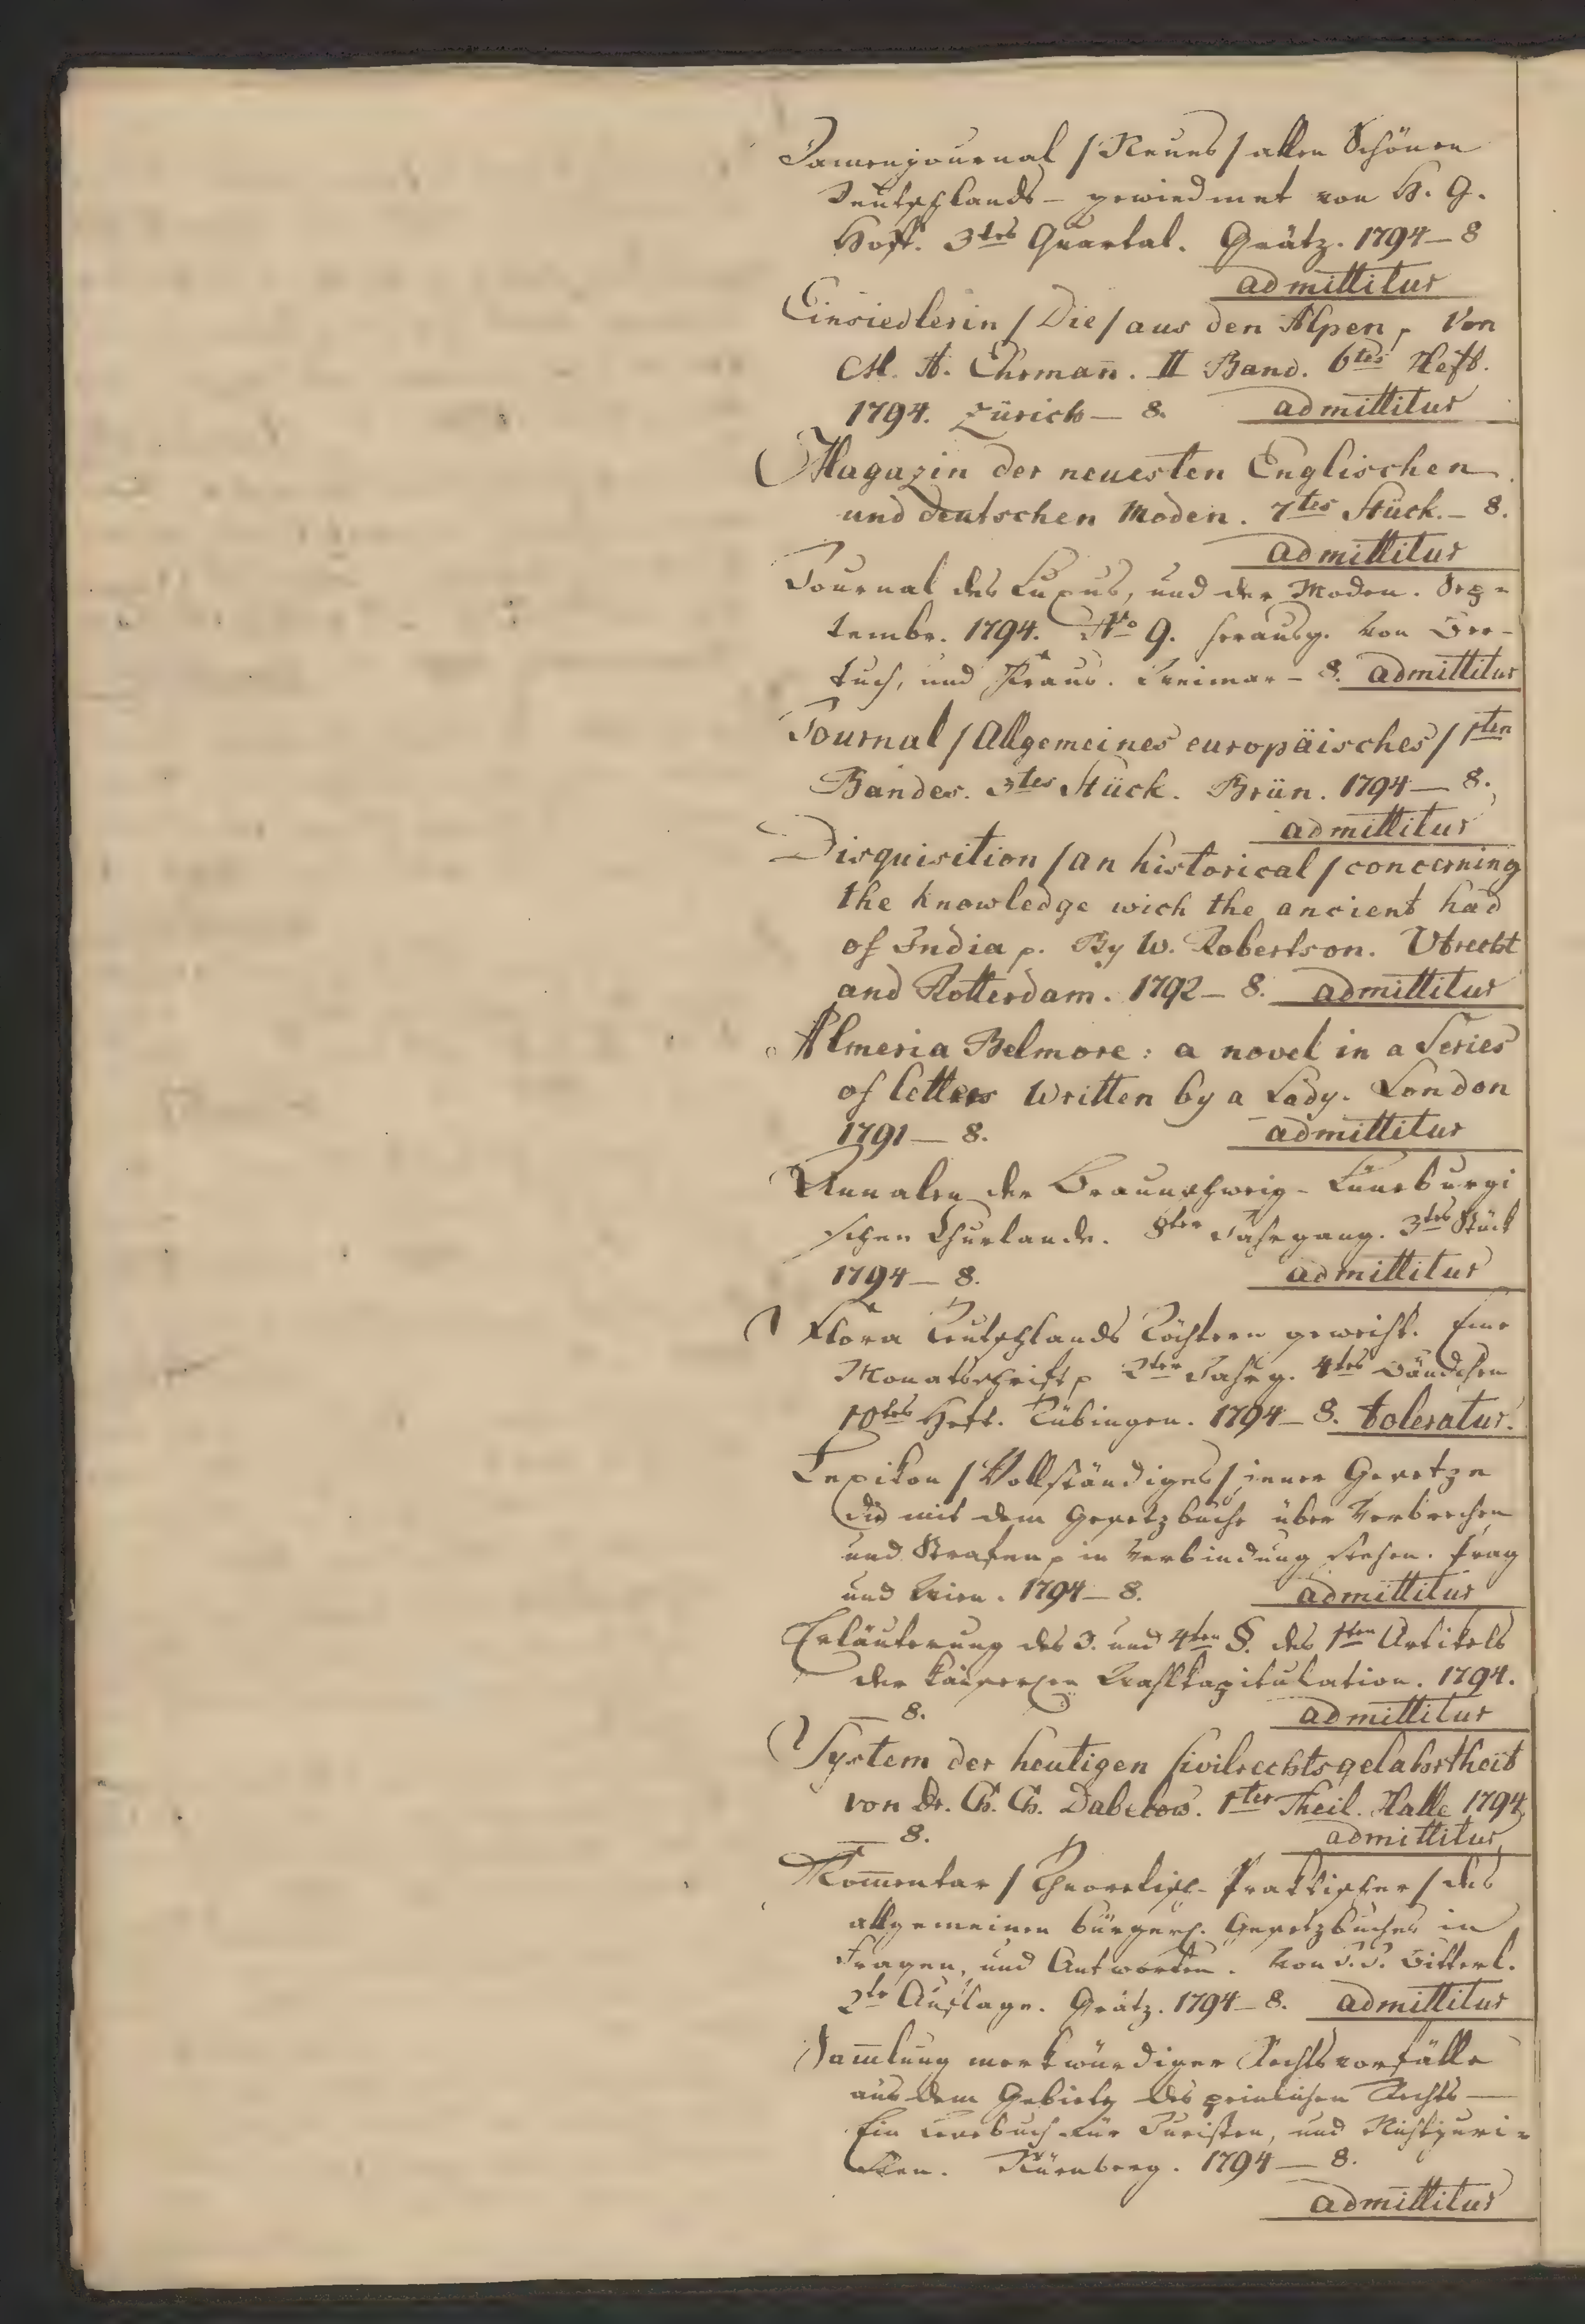 Damenjournal /Neues/ allen Schönen
Deutschlands – gewiedmet von H. G.
Hoff. 3tes Quartal. Grätz. 1794 – 8
admittitur
Einsiedlerin /Die/ aus den Alpen p Von
M. A. Ehrman̄. II Band. 6tes Heft.
1794. Zürich – 8. admittitur
Magazin der neuesten Englischen
und deutschen Moden. 7tes Stück. – 8.
admittitur
Journal des Luxus, und der Moden. Sep=
tember. 1794. No 9. herausg. von Ber=
tuch, und Kraus. Weimar – 8. admittitur
Journal /Allgemeines europäisches/ 1ten
Bandes. 3tes Stück. Brün. 1794 – 8.
admittitur
Disquisition /an historical/ concerning
the knowledge wich the ancient had
of India p. By W. Robertson. Utrecht
and Rotterdam. 1792 – 8. admittitur
Almeria Belmore: a novel in a Series
of letters written by a Lady. London
1791 – 8. admittitur
Annalen der Braunschweig-Lüneburgi
schen Churlande. 8ter Jahrgang. 3tes Stück
1794 – 8. admittitur
Flora Teutschlands Töchtern geweiht. Eine
Monatsschrift p 2ter Jahrg. 4tes Bändchen
10tes Heft. Tübingen. 1794 – 8. toleratur.
Lexikon /Vollständiges/ jener Gesetze
die mit dem Gesetzbuche über Verbrechen
und Strafen p in Verbindung stehen. Prag
und Wien. 1794 – 8. admittitur
Erläuterung des 3. und 4ten §. des 1ten Artikels
der kaiserlen Wahlkapitulation. 1794.
– 8. admittitur
System der heutigen Civilrechtsgelahrtheit
von Dr. Ch. Ch. Dabelow. 1ter Theil. Halle 1794
– 8. admittitur
Kom̄entar /Theoretisch-Praktischer/ des
allgemeinen bürgerl. Gesetzbuches in
Fragen, und Antworten. Von J. J. Bitterl.
2te Auflage. Grätz. 1794 – 8. admittitur
Sam̄lung merkwürdiger Rechtsvorfälle
aus dem Gebiete des peinlichen Rechts –
Ein Lesebuch für Juristen, und Nichtjuri=
sten. Nürnberg. 1794 – 8.
admittitur